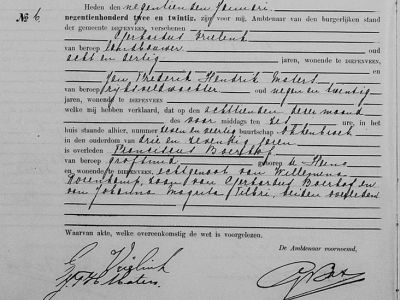 Heden den negentienden Januari
№ 6 negentienhonderd twee en twintig, zijn voor mij, Ambtenaar van den burgerlijken stand
der gemeente DIEPENVEEN, verschenen
Gerhardus Vrielink
van beroep landbouwer oud
acht en dertig jaren, wonende te DIEPENVEEN,
en
Jan Frederik Hendrik Maters
van beroep rijksveldwachter oud negen en twintig
jaren, wonende te DIEPENVEEN,
welke mij hebben verklaard, dat op achttienden dezer maand
des voor middags ten zes ure, in het
huis staande alhier, nummer zeven en veertig buurschap
in den ouderdom van drie en zeventig jaren
is overleden
Boerhof
van beroep geboren te
en wonende te DIEPENVEEN, echtgenoot van Willemina
zoon van Gerhardus Boerhof en
van Johanna beiden overleden
Waarvan akte, welke overeenkomstig de wet is voorgelezen.
De Ambtenaar voornoemd,
G Vrielink
J F H Maters